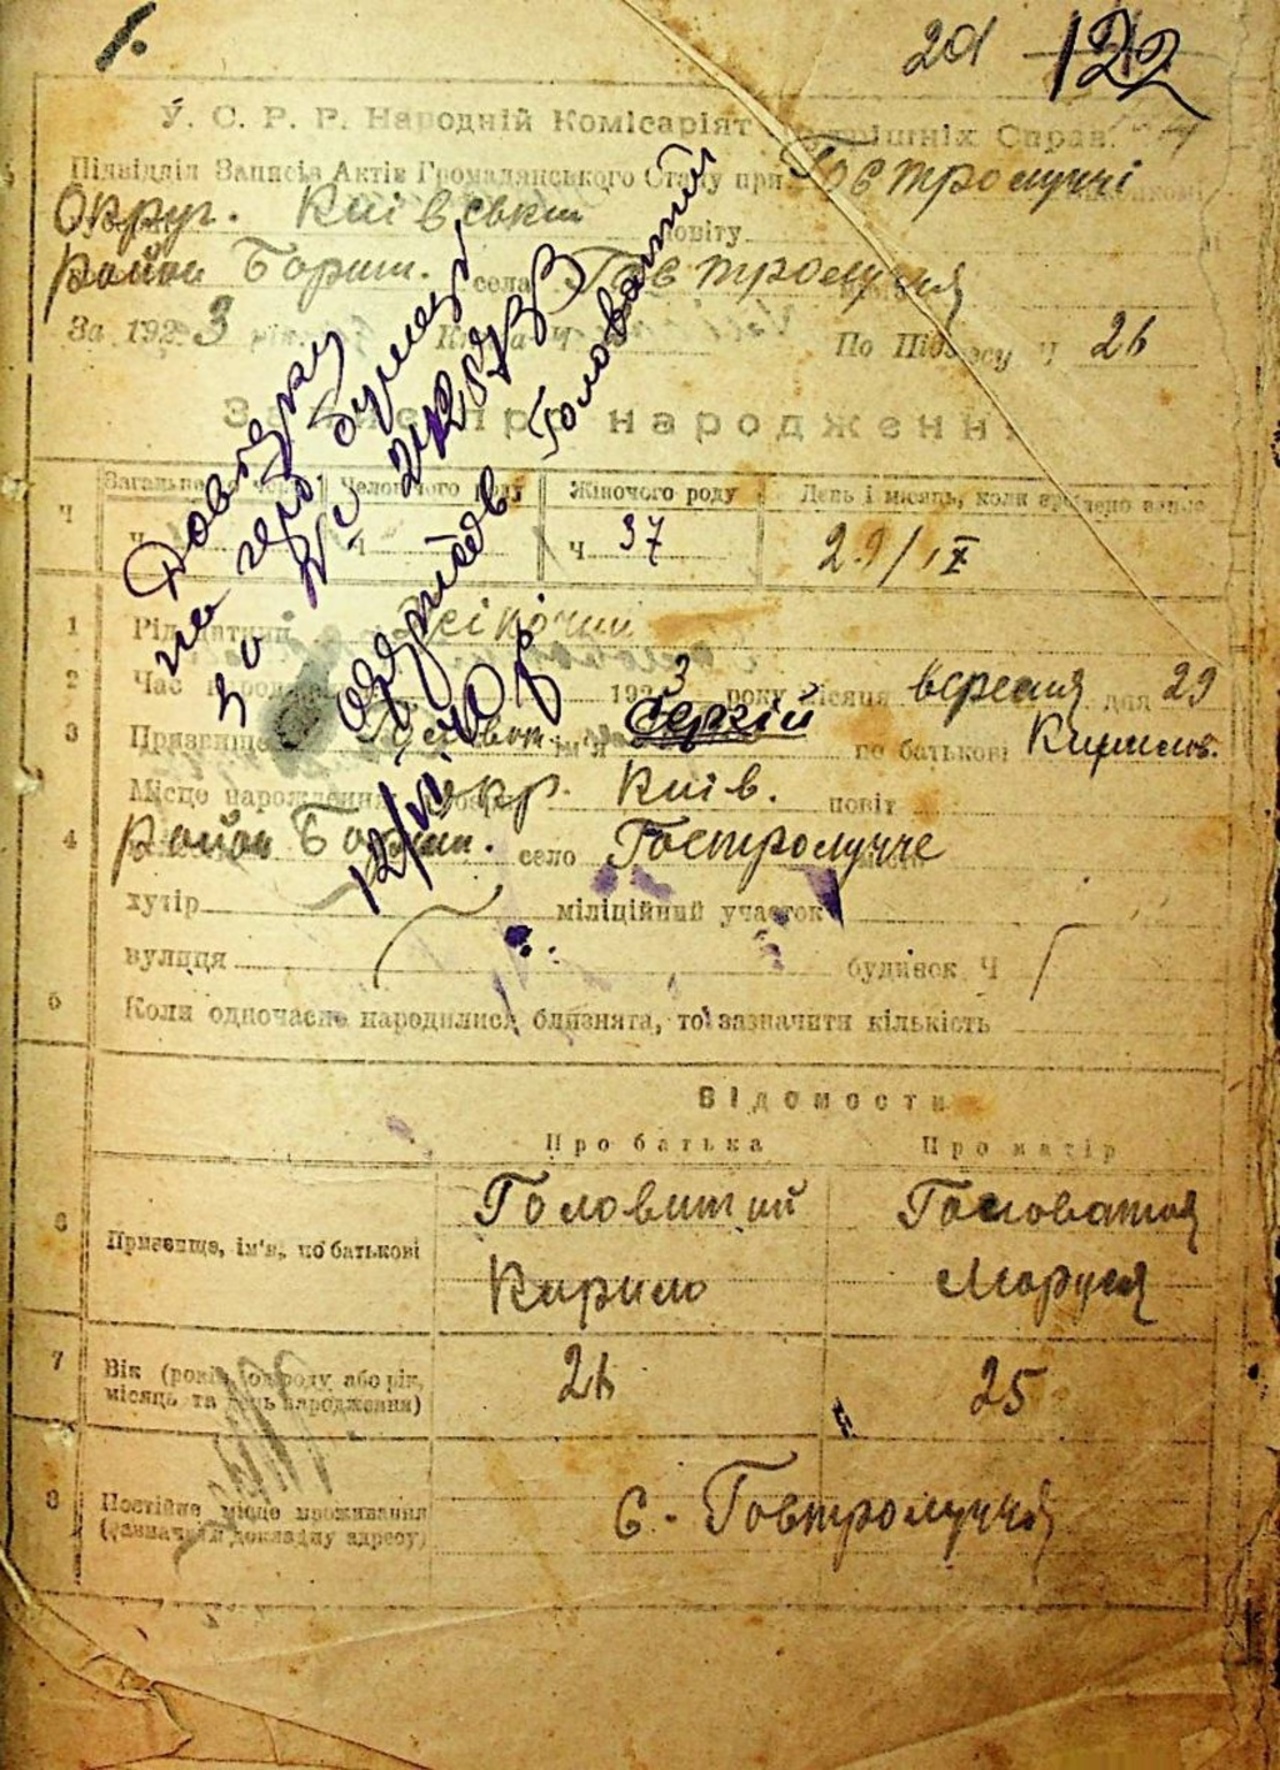 1.
201 122
У. С. Р. Р. Народній Комісаріят Внутрішніх Справ.
Підвідділ Записів Актів Громадянського Стану при Гостролуччі
Округ. Київськ повіту
район Бориш. села Гостролуччя
За 1923 рік. Книга Ч По Підпису Ч 26
Запис про народження
Загальне Чоловічого роду Жіночого роду День і місяць, коли зроблено запис
Ч Ч Ч Ч 37 29/IX
1 Рід дитини жіночий
2 Час народження 1923 року місяця вересня дня 29
3 Призвище Головат. ім'я Сергій по батькові Кирилов.
Місце народження окр. Київ. повіт
4 район Бориш. село Гостролучче
хутір міліційний участок
вулиця будинок Ч
5 Коли одночасно народилися близнята, то зазначити кількість
Відомости
Про батька Про матір
6 Призвище, ім'я, по батькові Головатий Головатая
Кирило Маруся
7 Вік (років від роду або рік, місяць та день народження) 26 25
8 Постійне місце проживання (зазначити докладну адресу) с. Гостролуччя
Довідку
на гербу бумазі
за №
Головатий